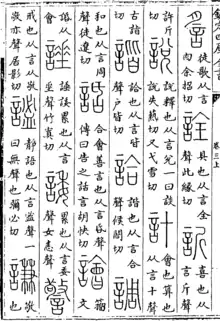 䚻 徒歌从言
肉余招切
詮 具也从言全
聲此緣切
訢 喜也从
言斤聲
許斤
切
說 說釋也从言兌一曰談
說失爇切又弋雪切
計 會也筭也
从言从十
古詣
切
諧 詥也从言皆
聲戶皆切
詥 諧也从言合
聲候閤切
調
和也从言周
聲徒遼切
話 合會善言也从言昏聲
傳曰告之話言胡快切
譮 籀
諈 諈諉纍也从言
垂聲竹寘切
諉 纍也从言委
聲女恚切
警
戒也从言从敬
敬亦聲居影切
謐 靜語也从言𥁑聲一
曰無聲也彌必切
謙 敬
也
卷三上